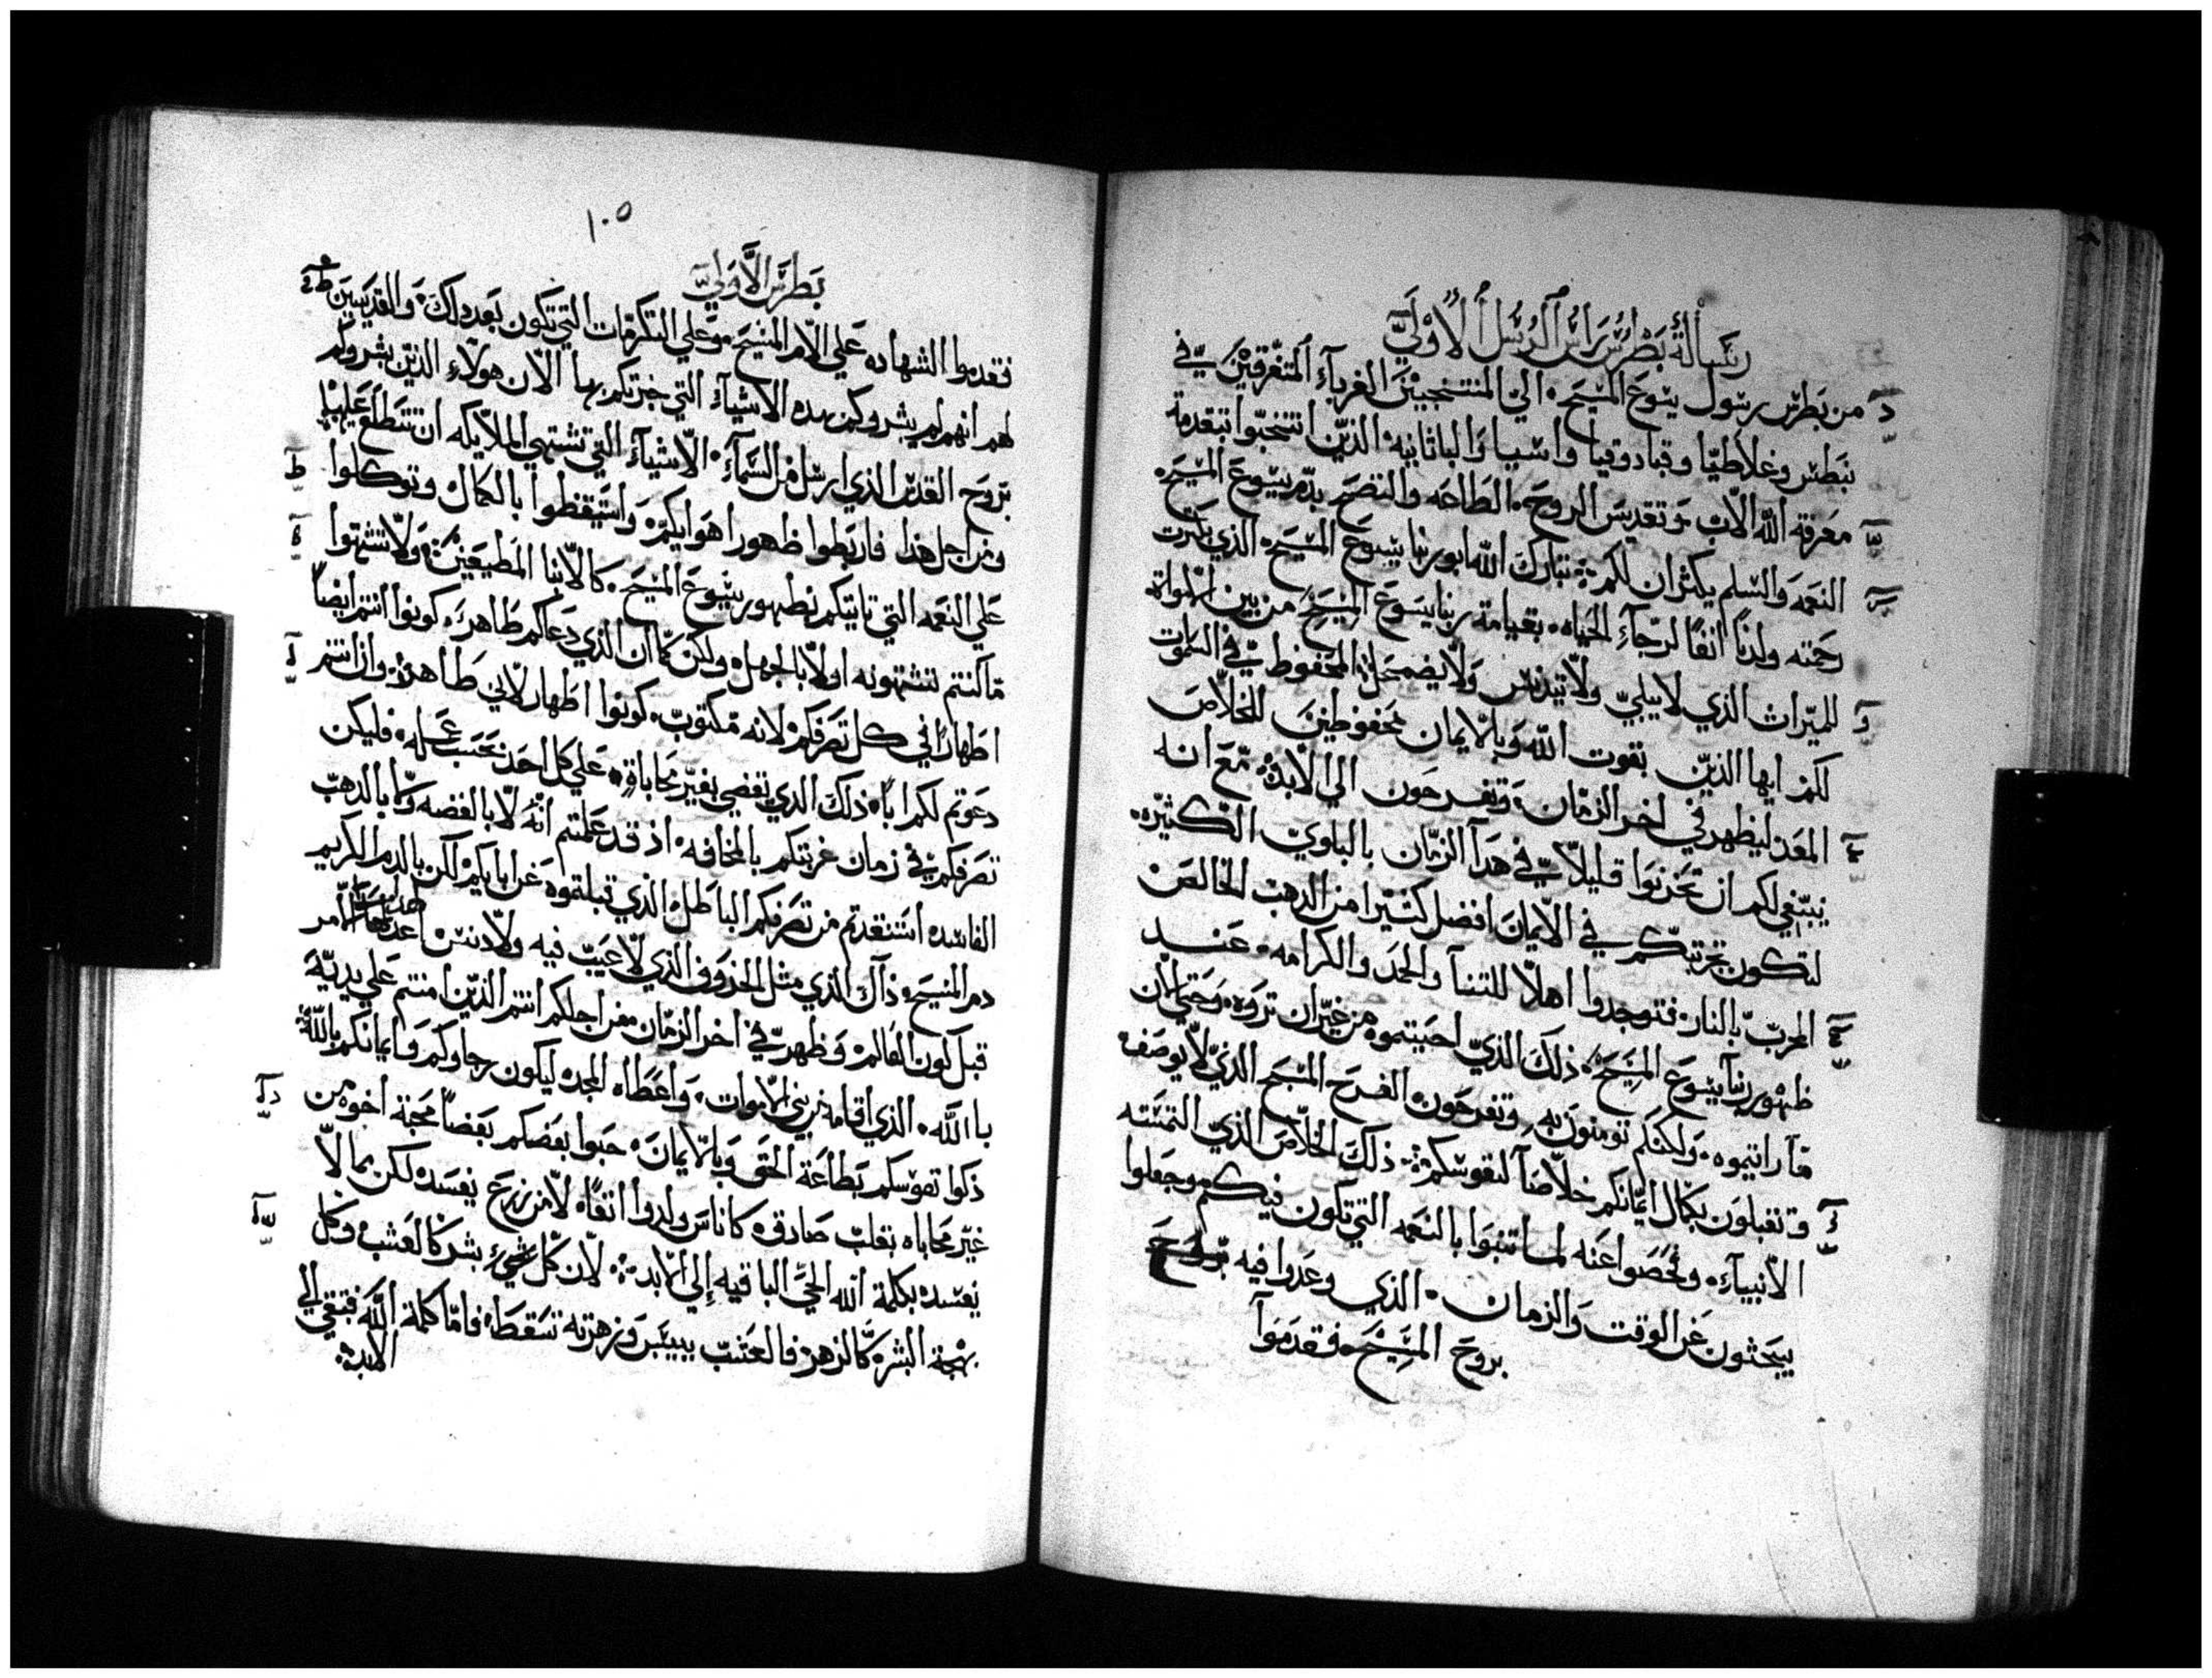 رسالة بطرس راس الرسل الاولي
من بطرس رسول يسوع المسيح الي المنتخبين الغرباء المتفرقين في
نبطس وغلاطيا وقبادوقيا واسيا والباثانيه الذين انتخبوا بتقدمة
معرفة الله الاب وتقديس الروح الطاعه والنضح بدم يسوع المسيح
النعمه والسلم يكثران لكم تبارك الله ابو ربنا يسوع المسيح الذي بكثرت
رحمته ولدنا انفا لرجاء الحياه بقيامة ربنا يسوع المسيح من بين الاموات
للميراث الذي لا يبلي ولا يتدنس ولا يضمحل المحفوظ في السموات
لكم ايها الذين بقوت الله وبالايمان محفوظين للخلاص
المعد ليظهر في اخر الزمان وتفرحون الي الابد مع انه
ينبغي لكم ان تحزنوا قليلا في هذا الزمان بالبلوي الكثيره
لتكون تجربتكم في الايمان افضل كثيرا من الذهب الخالص
المجرب بالنار فتوجدوا اهلا للتنا والحمد والكرامه عند
ظهور ربنا يسوع المسيح ذلك الذي احببتموه من غير ان تروه وحتي الان
ما رايتموه ولكنكم تومنون به وتفرحون الفرح المبجح الذي لا يوصف
وتقبلون بكمال ايمانكم خلاصا لنفوسكم ذلك الخلاص الذي التمسته
الانبياء وفحصوا عنه لما تنبوا بالنعمه التي تكون فيكم وجعلوا
يبحثون عن الوقت والزمان الذي وعدوا فيه
بروح المسيح فقدموا
١٠٥
بطرس الاولي
فقدموا الشهاده علي الام المسيح وعلي التكرمات التي تكون بعد ذلك والقديسين
لهم انهم لم يبشروكم بهذه الاشياء التي خبرتكم بها الان هولاء الذين بشروكم
بروح القدس الذي ارسل من السماء الاشياء التي تشتهي الملايكه ان تتطلع عليها
ومن اجل هذا فاربطوا ظهور اهوايكم واستيقظوا بالكمال وتوكلوا
علي النعمه التي تاتيكم بظهور يسوع المسيح كالابنا المطيعين ولا تشتهوا
ما كنتم تشتهونه اولا بالجهل ولكن كما ان الذي دعاكم طاهر كونوا انتم ايضا
اطهارا في كل تصرفكم لانه مكتوب كونوا اطهار لاني طاهر وان انتم
دعوتم لكم ابا ذلك الذي يقضي بغير محاباة علي كل احد بحسب عمله فليكن
تصرفكم في زمان غربتكم بالمخافه اذ قد علمتم انه لا بالفضه ولا بالذهب
الفاسده استنقدتم من تصرفكم الباطل الذي قبلتموه عن ابايكم لكن بالدم الكريم
دم المسيح ذاك الذي مثل الخروف الذي لا عيب فيه ولا دنس اعد الامر
قبل كون العالم وظهر في اخر الزمان من اجلكم انتم الذين امنتم علي يديه
بالله الذي اقامه من بين الاموات واعطاه المجد ليكون رجاوكم وايمانكم بالله
ذكوا نفوسكم بطاعة الحق وبالايمان حبوا بعضكم بعضا محبة اخوه من
غير محاباه بقلب صادق كاناس ولدوا انفا لا من زرع يفسد لكن بما لا
يفسد بكلمة الله الحي الباقيه إلي الابد لان كل شيء بشر كالعشب وكل
بهجة البشر كالزهر فالعشب ييبس وزهرته تسقط فاما كلمة الله فتبقي الي
الابد